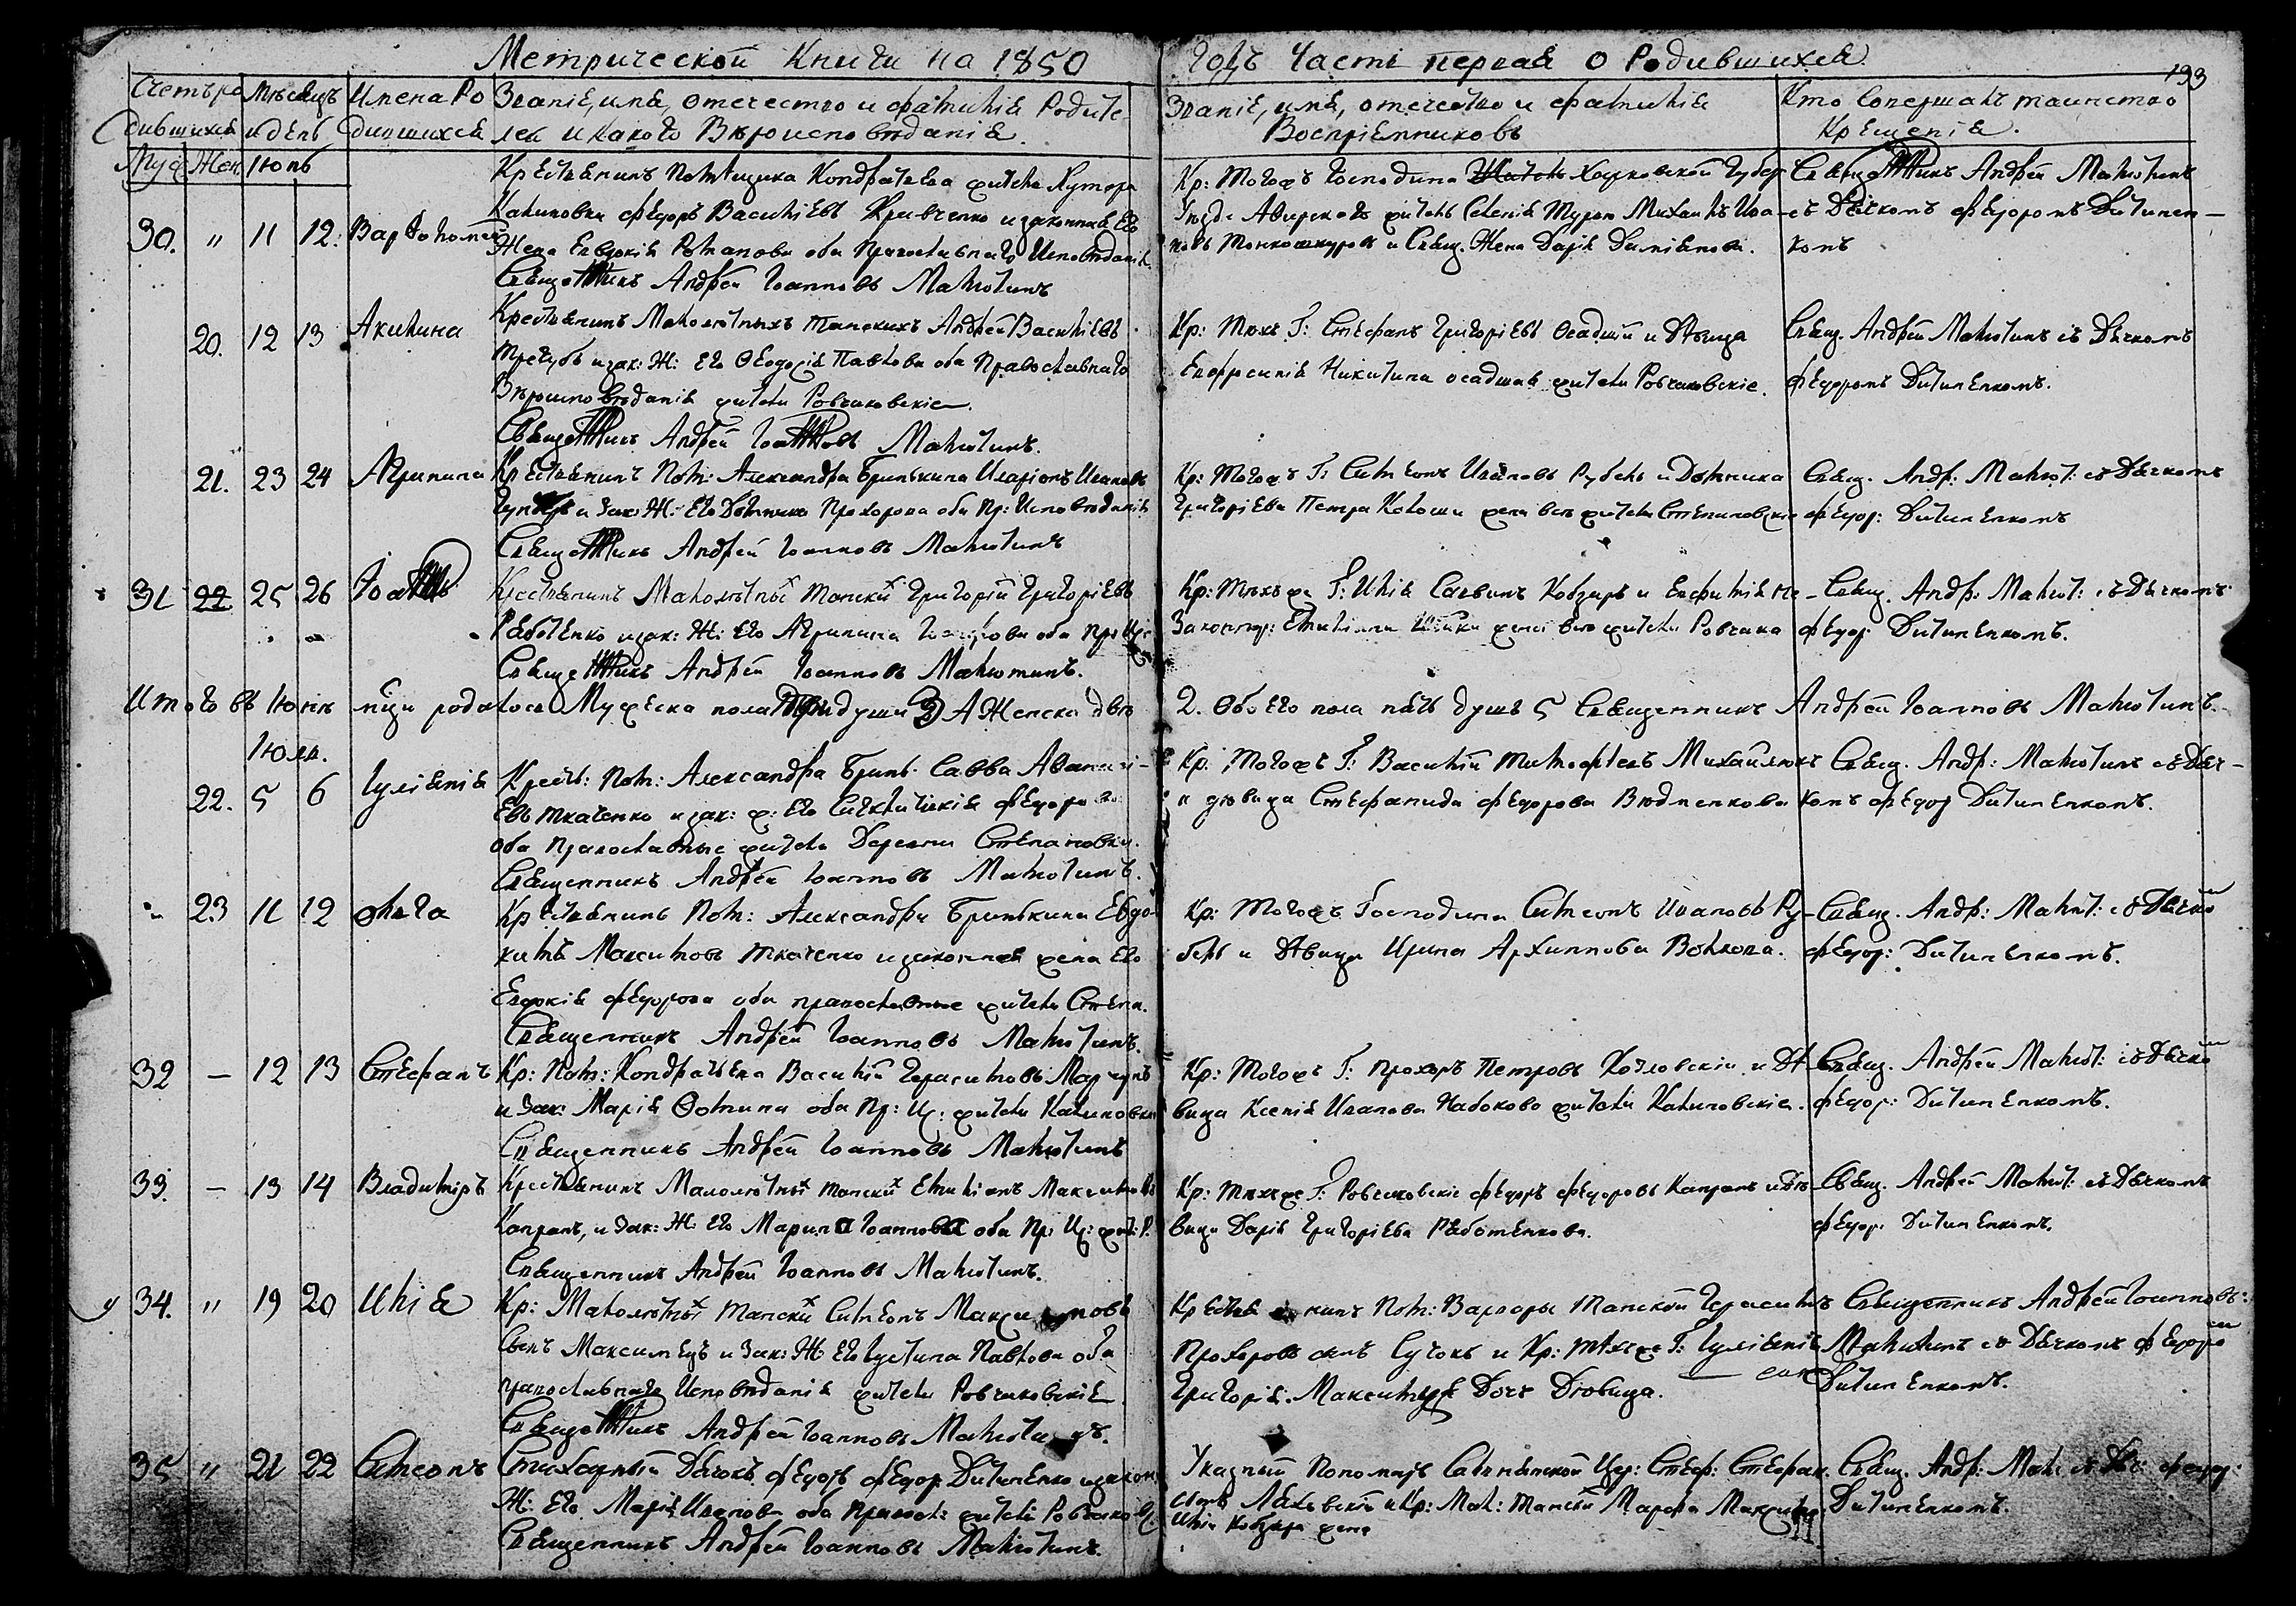 Метрической Книги на 1850 годъ Часть первая о Родившихся
193
Счетъ ро Мѣсяцъ Имена Ро Званіе, имя, отечество и фамилія Родите-
дившихся и день дившихся лей и какого Вѣроисповѣданія.
Званіе, имя, отечество и фамилія
Воспріемниковъ
Кто Совершалъ таинство
Крещенія.
Муж Жен. Июнь
30. " 11 12. Варфоломей
Крестьянинъ Помѣщика Кондратьева житель Хутора
Калиновки Федоръ Васильевъ Кривченко и законная Его
Жена Евдокія Романова оба Православнаго Исповѣданія.
Священникъ Андрей Іоанновъ Малютинъ
Кр: Тогожъ Господина Харковской Губер
Уѣзда житель Селенія Михаилъ Ива-
новъ и Свящ. Жена Дарія Даміянова.
Священникъ Андрей Малютинъ
съ Дячкомъ Федоромъ Литинен-
комъ
20. 12 13 Акилина
Крестьянинъ Малолѣтныхъ Танскихъ Андрей Васильевъ
Трегубъ и зак: Ж: Его Ѳеодосія Павлова оба Православнаго
Вѣроисповѣданія жители Ровчаковскіе.
Священникъ Андрей Іоанновъ Малютинъ.
Кр: Тѣхъ Г: Стефанъ Григоріевъ Осадчій и Дѣвица
Евфросинія Никитина осадчая жители Ровчаковскіе.
Свящ. Андрей Малютинъ съ Дячкомъ
Федоромъ Литиненкомъ.
21. 23 24 Агрипина
Крестьянинъ Пом: Александра Бринькина Иларіонъ Ивановъ
и Зак: Ж: Его Домникія Прохорова оба Пр: Исповѣданія
Священникъ Андрей Іоанновъ Малютинъ
Кр: Тогожъ Г: Симеонъ Ивановъ Рубель и Домника
Григоріева Петра жена всѣ жители Степановскіе
Свящ. Андр: Малют: съ Дячкомъ
Федор: Литиненкомъ
31 22 25 26 Іоаннъ
Крестьянинъ Малолѣтных Танских Григорій Григоріевъ
Ряботенко и зак: Ж: Его Агрипина оба Пр:
Священникъ Андрей Іоанновъ Малютинъ.
Кр: Тѣхъ же Г: Илія Саввинъ Кобзарь и Евфимія Не-
жена всѣ жители Ровчака
Свящ. Андр: Малют: съ Дячкомъ
Федор: Литиненкомъ.
Итого въ Июнѣ мцѣ родилось Мужеска пола Три души 3) А Женска двѣ
2. Обоего пола пять душъ 5 Священникъ Андрей Іоанновъ Малютинъ.
Июль.
22. 5 6 Іуліянія
Крест: Пом: Александра Бринь: Савва
евъ Ткаченко и зак: ж: Его Федорова
оба Православные жители Деревни Степановки.
Священникъ Андрей Іоанновъ Малютинъ.
Кр: Тогожъ Г: Василій Тимофѣевъ Михайлюкъ
и дѣвица Стефанида Федорова
Свящ. Андр: Малютинъ съ Дяч-
комъ Федор Литиненкомъ.
" 23 11 12 Ольга
Крестьянинъ Пом: Александра Бринькина Евдо-
кимъ Максимовъ Ткаченко и законная жена Его
Евдокія Федорова оба православные жители Степа.
Священникъ Андрей Іоанновъ Малютинъ.
Кр: Тогожъ Господина Симеонъ Ивановъ Ру-
бель и Дѣвица Ирина Архипова Волкова.
Свящ. Андр: Малют: съ Дячком
Федор: Литиненкомъ.
32 — 12 13 Стефанъ
Кр: Пом: Кондратьева Василій Герасимовъ
и Зак: Марія Фомина оба Пр: Ис: жители Калиновки
Священникъ Андрей Іоанновъ Малютинъ
Кр: Тогожъ Г: Прохоръ Петровъ Козловскій и Дѣ-
вица Ксенія Иванова Набокова жители Калиновскіе.
Свящ. Андрей Малют: съ Дячком
Федор: Литиненкомъ.
33. — 13 14 Владимiръ
Крестьянинъ Малолѣтных Танских Емиліанъ Максимовъ
Капранъ, и Зак: Ж: Его Марина Іоаннова оба Пр: Ис: жит: Р.
Священникъ Андрей Іоанновъ Малютинъ.
Кр: Тѣхъже Г: Ровчаковскіе Федоръ Федоровъ Капранъ и Дѣ-
вица Дарія Григоріева Ряботенкова.
Свящ. Андрей Малют: съ Дячкомъ
Федор: Литиненкомъ.
34. " 19 20 Илія
Кр: Малолѣтных Танских Симеонъ Максимовъ
сынъ Максимецъ и Зак: Ж: Его Іустина Павлова оба
православнаго Исповѣданія жители Ровчаковскіе
Священникъ Андрей Іоанновъ Малютинъ.
Крестьянинъ Пом: Варвары Танской Герасимъ
Прохоровъ сынъ Сучокъ и Кр: тѣхже Г: Іуліянія
Григорія Максимця Дочь Дѣвица.
Священникъ Андрей Іоанновъ
Малютинъ съ Дячкомъ Федором
Литиненкомъ.
35 " 21 22 Симеонъ
Стихарный Дячокъ Федоръ Федор Литиненко и закон
Ж: Его Марія Иванова оба Правосл: жители Ровчаковс.
Священникъ Андрей Іоанновъ Малютинъ.
Указный Пономарь Цер: Стеф: Стефан.
сынъ и Кр: Мал: Танских Марфа Максимова
Иліи Кобзаря жена
Свящ. Андр: Мал съ Дяч: Федор:
Литиненкомъ.